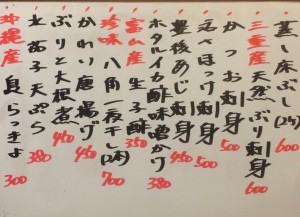 蒸し床ぶし(2ヶ) 600
三重産 天然ぶり刺身 600
かつお刺身 500
活さばっけ刺身 500
豊後あじ刺身 450
ホタルイカ酢味噌かけ 380
富山産 生子酢 350
珍味 八角一夜干し(1本) 700
かれい唐揚げ 450
ぶりと大根煮 450
土筆子天ぷら 380
沖縄産 島らっきょ 300